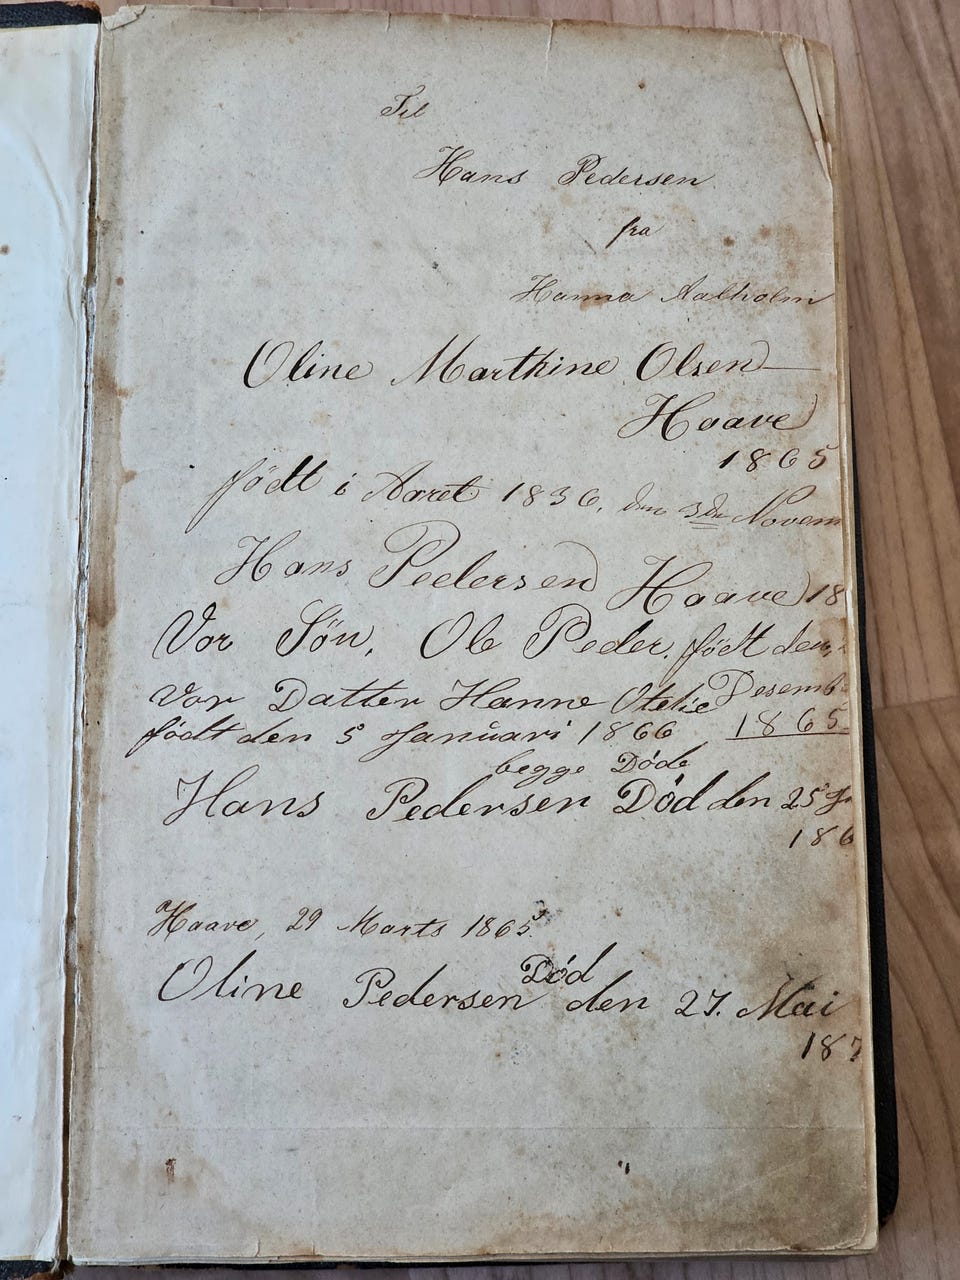 Til
Hans Pedersen
fra
Hanna Aalholm
Oline Marthine Olsen
Haave
1865
født i Aaret 1836, den 3de Novem
Hans Pedersen Haave 18
Vor Søn, Ole Peder, født den,
Desemb
Vor Datter Hanne Otelie
1865
født den 5 Januari 1866
begge Døde
Hans Pedersen Død den 25
186
Haave, 29 Marts 1865
Død
Oline Pedersen den 27. Mai
187